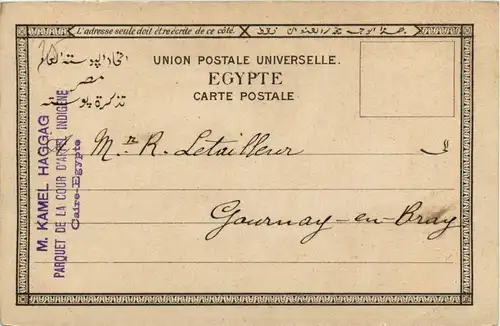 L'adresse seule doit être écrite de ce côté.
UNION POSTALE UNIVERSELLE.
EGYPTE
CARTE POSTALE
اتحاد البوستة العام
مصر
تذكرة بوستة
M. KAMEL HAGGAG
PARQUET DE LA COUR D'APPEL INDIGÈNE
Caire-Egypte
Mr R. Letailleur
Gournay-en-Bray